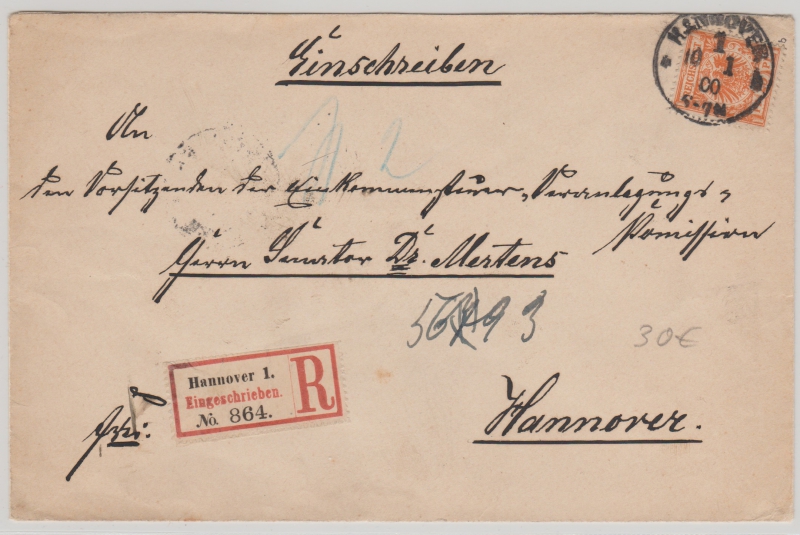 Einschreiben
HANNOVER
1
10 1
00
5-7N
REICHSPOST
An
den Vorsitzenden der Einkommensteuer-Veranlagungs-
Kommission
Herrn Senator Dr. Mertens
2
3
30€
Hannover 1.
Eingeschrieben.
No. 864.
R
Hannover.